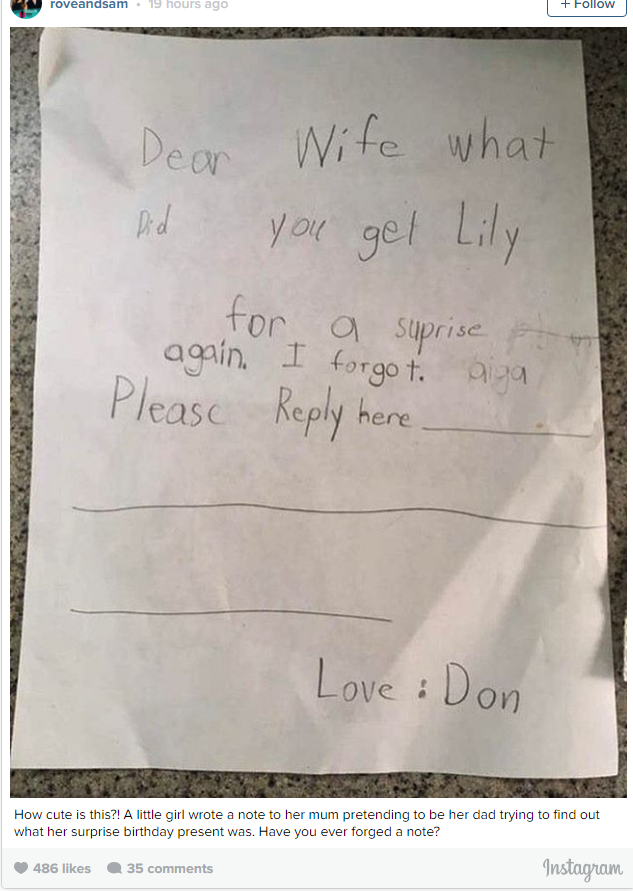 roveandsam • 19 hours ago
+ Follow
Dear Wife what
Did you get Lily
for a suprise
again. I forgot. aiga
Please Reply here
Love : Don
How cute is this?! A little girl wrote a note to her mum pretending to be her dad trying to find out
what her surprise birthday present was. Have you ever forged a note?
486 likes 35 comments
Instagram